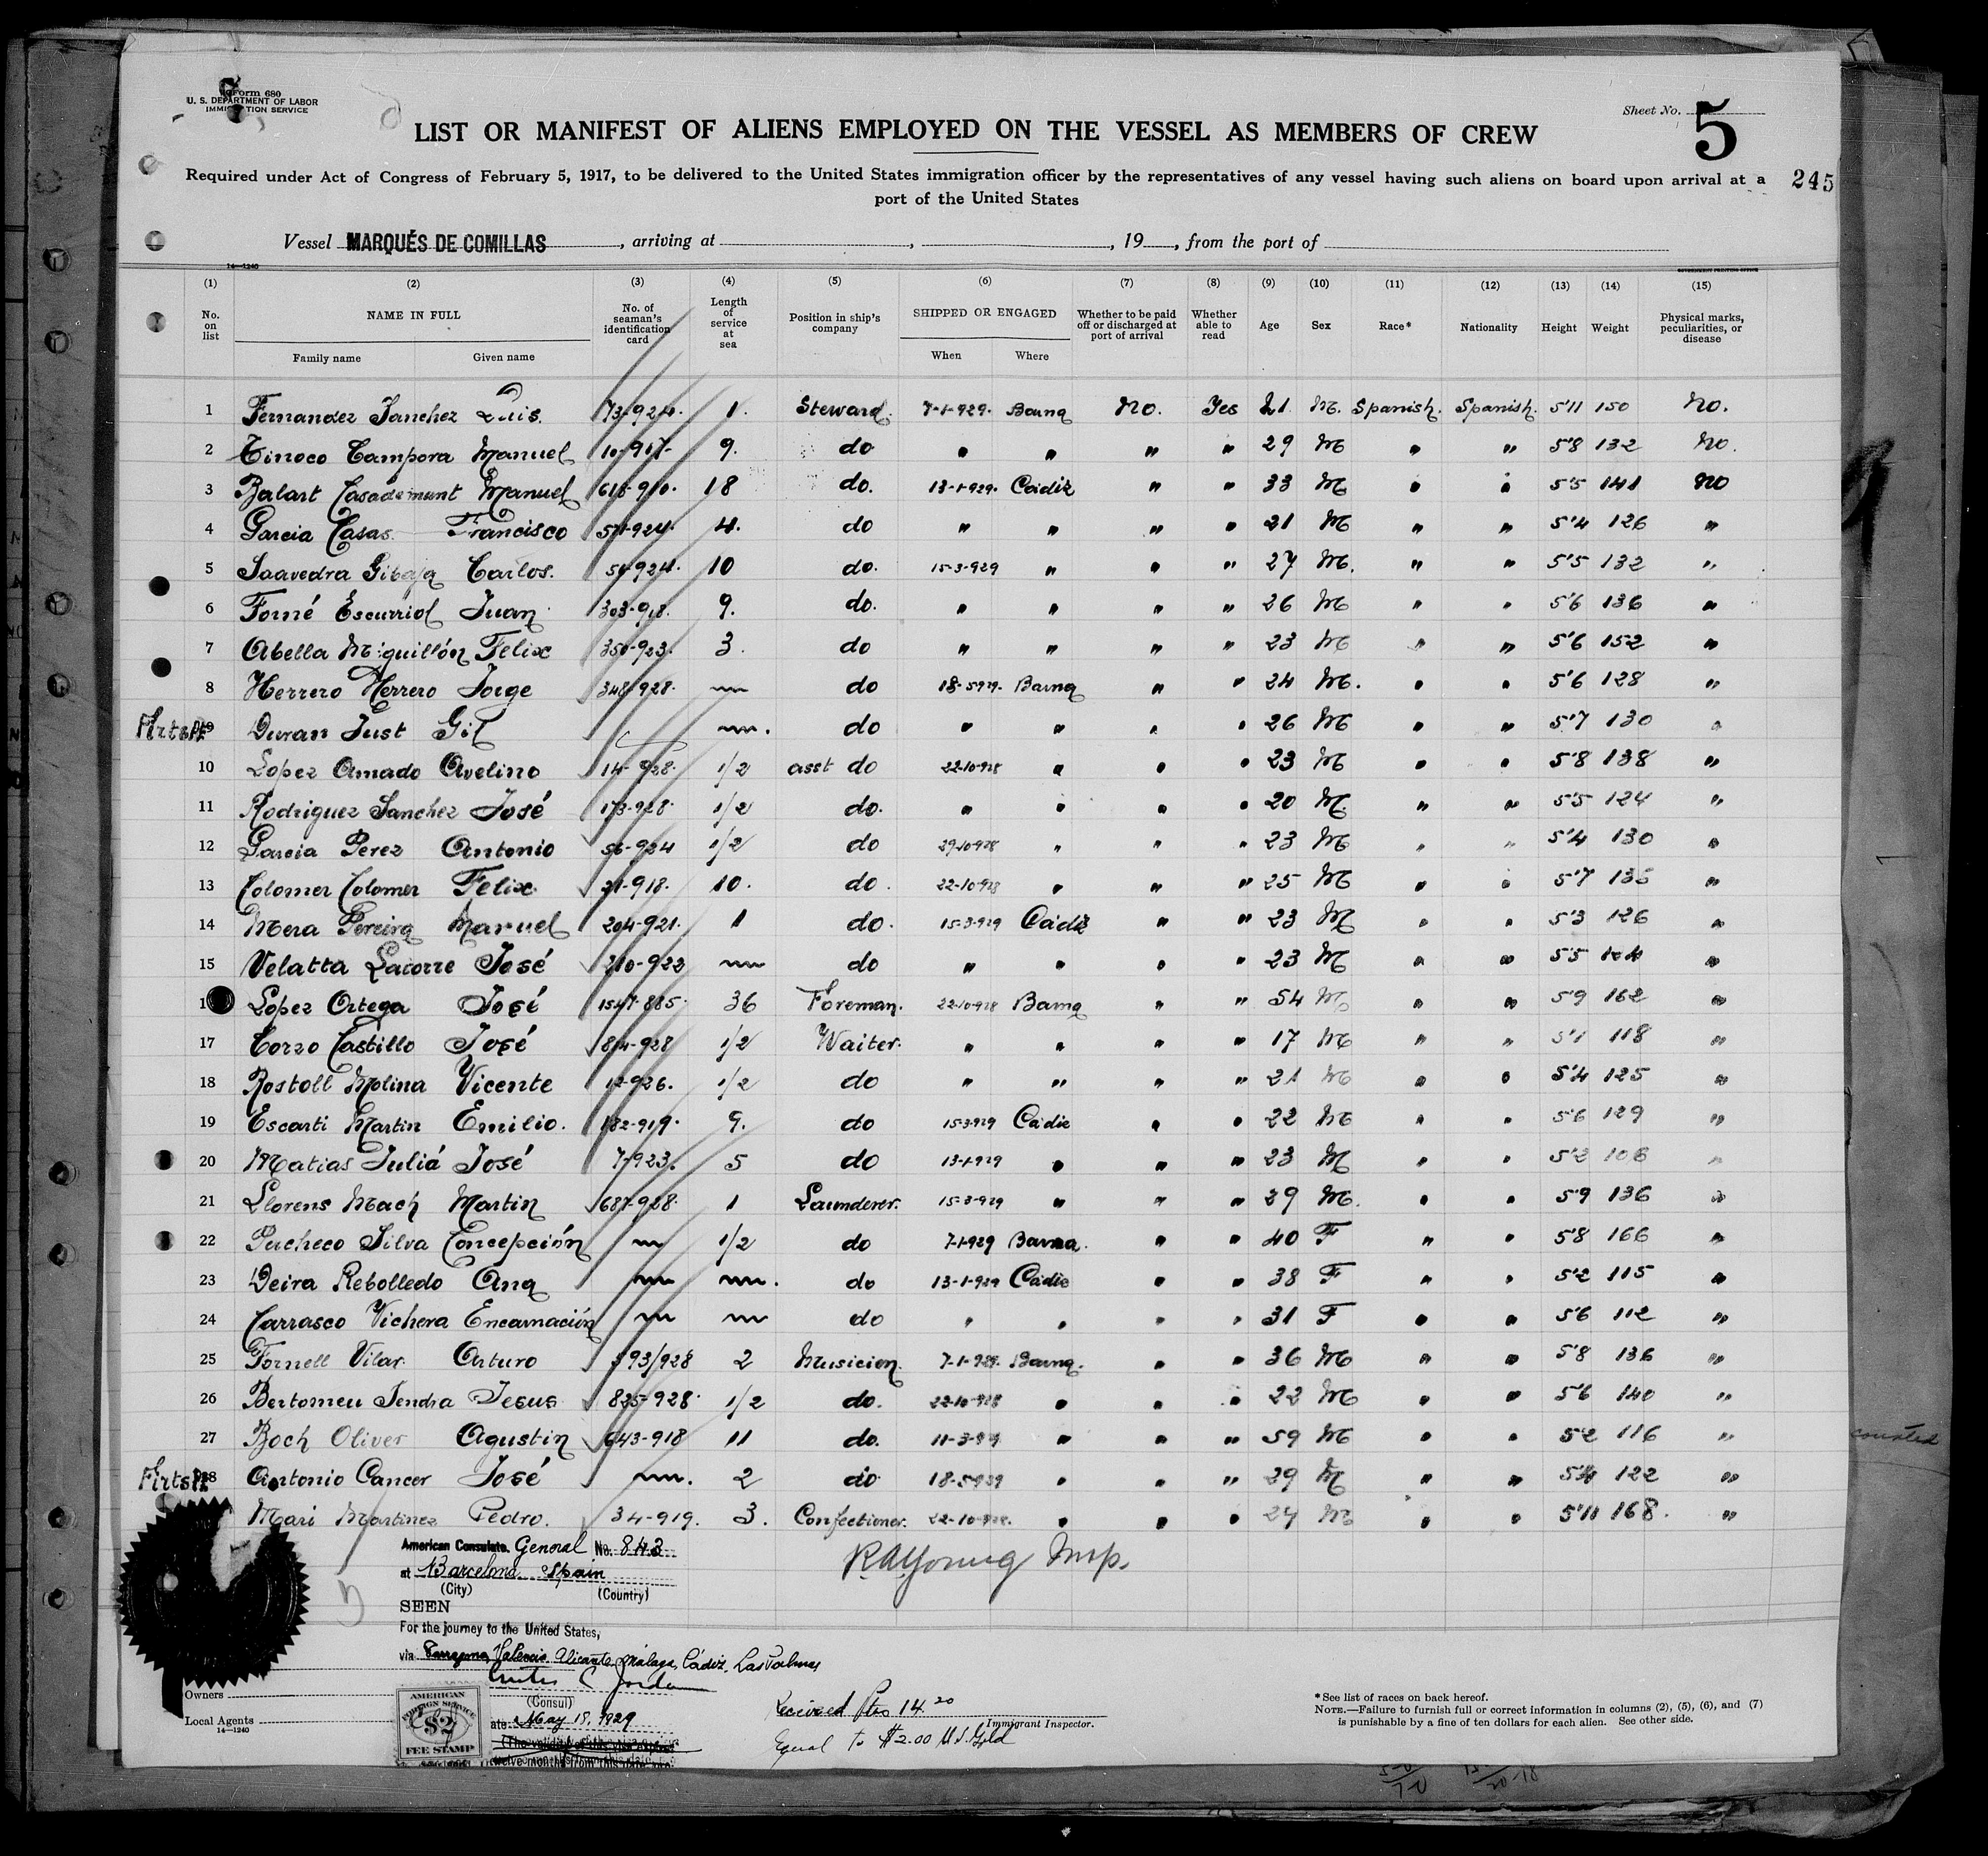 Form 680
U. S. DEPARTMENT OF LABOR
IMMIGRATION SERVICE
Sheet No. 5
LIST OR MANIFEST OF ALIENS EMPLOYED ON THE VESSEL AS MEMBERS OF CREW
Required under Act of Congress of February 5, 1917, to be delivered to the United States immigration officer by the representatives of any vessel having such aliens on board upon arrival at a
port of the United States
245
Vessel MARQUÉS DE COMILLAS, arriving at , , 19 , from the port of
14—1240
GOVERNMENT PRINTING OFFICE
(1) (2) (3) (4) (5) (6) (7) (8) (9) (10) (11) (12) (13) (14) (15)
No. on list NAME IN FULL Family name Given name No. of seaman's identification card Length of service at sea Position in ship's company SHIPPED OR ENGAGED When Where Whether to be paid off or discharged at port of arrival Whether able to read Age Sex Race* Nationality Height Weight Physical marks, peculiarities, or disease
1 Fernandez Sanchez Luis. 73-924. 1. Steward. 7-1-929. Barna No. Yes 21 M. Spanish. Spanish. 5'11 150 No.
2 Tinoco Campora Manuel 10-917- 9. do " " " " 29 M " " 5'8 132 No.
3 Balart Casademunt Manuel 618-910. 18 do. 13-1-929. Cadiz " " 33 M " " 5'5 141 No
4 Garcia Casas Francisco 571-924. 4. do " " " " 21 M " " 5'4 126 "
5 Saavedra Gibaja Carlos. 54-924. 10 do. 15-3-929 " " " 27 M. " " 5'5 132 "
6 Forné Escurriol Juan 303-918. 9. do. " " " " 26 M " " 5'6 136 "
7 Abella Miguillón Felix 350-923. 3. do " " " " 23 M " " 5'6 152 "
8 Herrero Herrero Jorge 348-928. do 18-5-929. Barna " " 24 M. " " 5'6 128 "
9 Duran Just Gil do " " " " 26 M " " 5'7 130 "
10 Lopez Amado Avelino 14-928. 1/2 asst do 22-10-928 " " " 23 M " " 5'8 138 "
11 Rodriguez Sanchez José 173-928. 1/2 do. " " " " 20 M. " " 5'5 124 "
12 Garcia Perez Antonio 56-924 1/2 do 29-10-928 " " " 23 M " " 5'4 130 "
13 Colomer Colomer Felix. 21-918. 10. do. 22-10-928 " " " 25 M " " 5'7 136 "
14 Mera Pereira Manuel 204-921. 1 do. 15-3-929 Cadiz " " 23 M " " 5'3 126 "
15 Velatta Lacorre José 210-922 do " " " " 23 M " " 5'5 "
1 Lopez Ortega José 1547-885. 36 Foreman. 22-10-928 Barna " " 54 M " " 5'9 162 "
17 Corzo Castillo José 814-928 1/2 Waiter. " " " " 17 M " " 5'1 118 "
18 Rostoll Molina Vicente 12-926. 1/2 do " " " " 21 M " " 5'4 125 "
19 Escarti Martin Emilio. 182-919. 9. do 15-3-929 Cadiz " " 22 M " " 5'6 129 "
20 Matias Juliá José 7-923. 5 do 13-1-929 " " " 23 M " " 5'2 106 "
21 Llorens Mach Martin 687-928. 1 Launderer. 15-3-929 " " " 29 M. " " 5'9 136 "
22 Pacheco Silva Concepción 1/2 do 7-1-929 Barna. " " 40 F " " 5'8 166 "
23 Deira Rebolledo Ana do 13-1-929 Cadiz " " 38 F " " 5'2 115 "
24 Carrasco Vichera Encarnación do " " " " 31 F " " 5'6 112 "
25 Fornell Vilar. Arturo 593/928 2 Musicien. 7-1-929. Barna. " " 36 M " " 5'8 136 "
26 Bertomeu Sendra Jesus 825-928. 1/2 do. 22-10-928 " " " 22 M " " 5'6 140 "
27 Boch Oliver Agustin 643-918 11 do. 11-3-929 " " " 59 M " " 5'2 116 "
28 Antonio Cancer José 2 do 18-5-929 " " " 29 M " " 5'4 122 "
Mari Martinez Pedro. 34-919. 3. Confectioner. 22-10-928. " " " 24 M " " 5'11 168. "
American Consulate General No. 843
at Barcelona Spain
(City) (Country)
SEEN
For the journey to the United States,
via Tarragona, Valencia, Alicante, Malaga, Cádiz, Las Palmas
(Consul)
R.A. Young Insp.
Owners
Local Agents
14—1240
AMERICAN
FOREIGN SERVICE
$2
FEE STAMP
Date May 18, 1929
(The validity of this visa expires
twelve months from this date
Received Ptas 14.20
Immigrant Inspector.
Equal to $2.00 U.S. Gold
*See list of races on back hereof.
NOTE.—Failure to furnish full or correct information in columns (2), (5), (6), and (7)
is punishable by a fine of ten dollars for each alien. See other side.